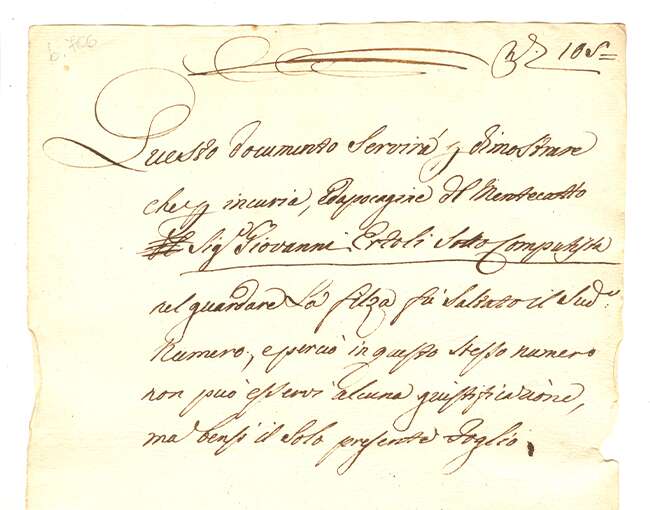 b. 766
N.º 108=
Questo documento servirà p dimostrare
che p incuria, e dapocagine del Mentecatto
Sigr. Giovanni Ertoli Sotto Computista
nel guardare la filza fù saltato il Sudo.
Numero, e perciò in questo stesso numero
non può esservi alcuna giustificazione,
ma bensì il solo presente foglio.